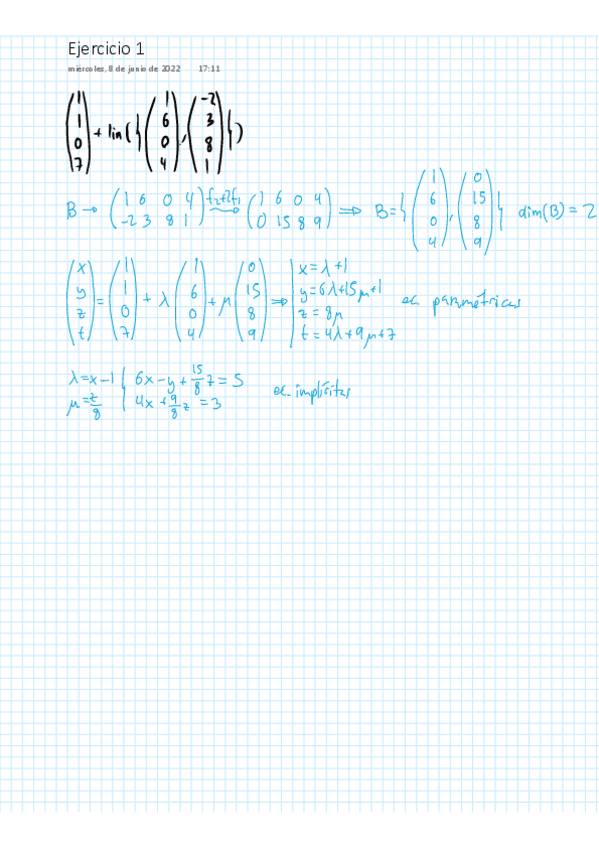 Ejercicio 1
miércoles, 8 de junio de 2022 17:11
(1 1 0 7) + lin({(1 6 0 4), (-2 3 8 1)})
B → (1 6 0 4 / -2 3 8 1) f₂+2f₁ → (1 6 0 4 / 0 15 8 9) ⇒ B={(1 6 0 4), (0 15 8 9)} dim(B) = 2
(x y z t) = (1 1 0 7) + λ (1 6 0 4) + μ (0 15 8 9) ⇒
x = λ+1
y = 6λ+15μ+1
z = 8μ
t = 4λ+9μ+7
ec. paramétricas
λ = x-1 6x-y+15/8 z = 5
μ = z/8 4x+9/8 z = 3
ec. implícitas